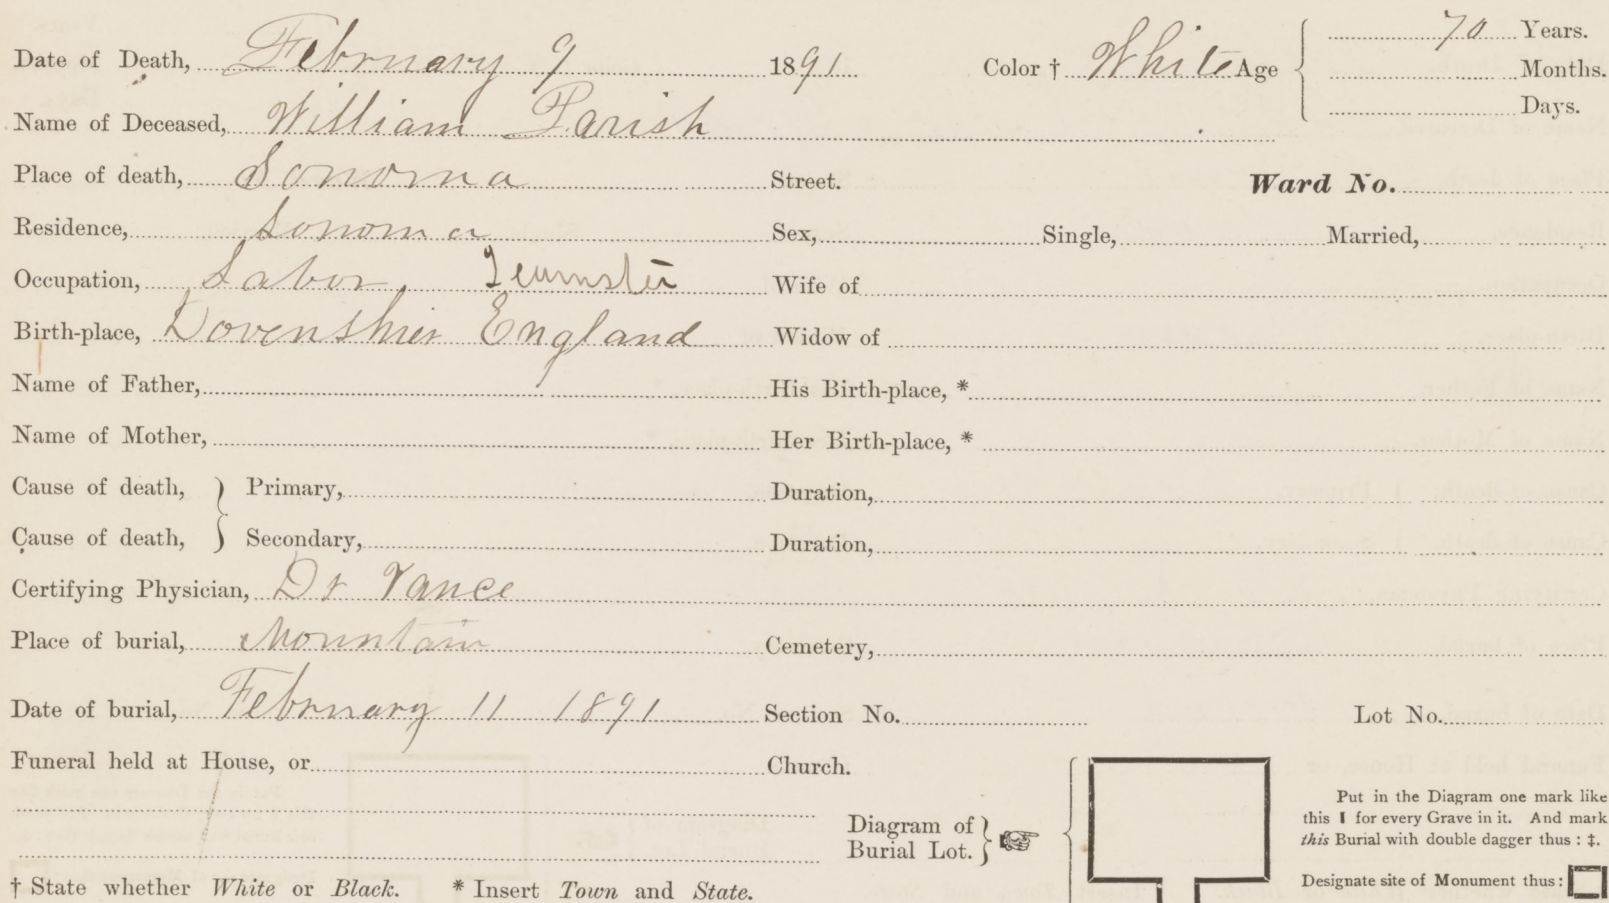 Date of Death, February 9 1891 Color † White Age 70 Years.
Months.
Days.
Name of Deceased, William Parish
Place of death, Sonoma Street. Ward No.
Residence, Sonoma Sex, Single, Married,
Occupation, Labor Teumster Wife of
Birth-place, Dovenshier England Widow of
Name of Father, His Birth-place, *
Name of Mother, Her Birth-place, *
Cause of death, } Primary, Duration,
Cause of death, } Secondary, Duration,
Certifying Physician, Dr Vance
Place of burial, Mountain Cemetery,
Date of burial, February 11 1891 Section No. Lot No.
Funeral held at House, or Church.
Diagram of
Burial Lot.
Put in the Diagram one mark like
this I for every Grave in it. And mark
this Burial with double dagger thus : ‡.
Designate site of Monument thus :
† State whether White or Black. * Insert Town and State.